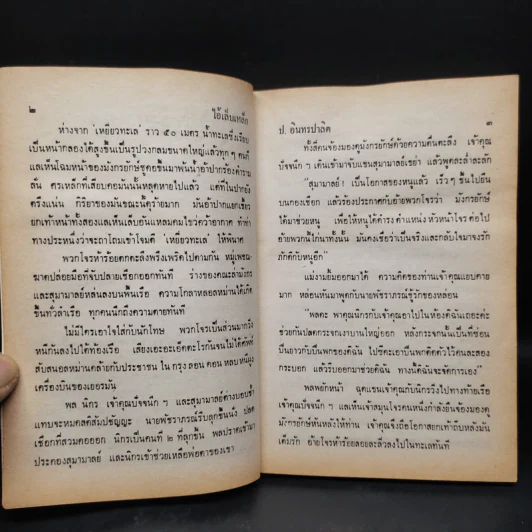 ๒
ไอ้เล็บเหล็ก
ห่างจาก 'เหยี่ยวทะเล' ราว ๕๐ เมตร น้ำทะเลซึ่งเรียบ
เป็นหน้ากลองได้สูงขึ้นเป็นรูปวงกลมขนาดใหญ่แล้วทุก ๆ คนก็
แลเห็นโฉมหน้าของมังกรยักษ์ผุดขึ้นมาพ่นน้ำอ้าปากร้องคำราม
ลั่น ตรเหล็กที่เสียบคอมันนั้นหลุดหายไปแล้ว แต่ที่ในปากยัง
ตรึงแน่น กิริยาของมันขณะนั้นดุร้ายมาก มันอ้าปากแยกเขี้ยว
ยกเท้าหน้าทั้งสองแลเห็นเล็บอันแหลมคมไขว่คว้าอากาศ ทำท่า
ทางประหนึ่งว่าจะถาโถมเข้าโจมตี 'เหยี่ยวทะเล' ให้พินาศ
พวกโจรห้าร้อยตกตะลึงพรึงเพริดไปตามกัน หมู่เพชฌ-
ฆาตปล่อยมือที่จับปลายเชือกออกทันที ร่างของคณะสามเกลอ
และสุมามาลย์หล่นลงบนพื้นเรือ ความโกลาหลอลหม่านได้เกิด
ขึ้นทั่วลำเรือ ทุกคนนึกถึงความตายทันที
ไม่มีใครเอาใจใส่กับนักโทษ พวกโจรเป็นส่วนมากวิ่ง
หนีกันลงไปใต้ท้องเรือ เสียงเอะอะเอ็ดตะโรกันจนไม่ได้ศัพท์
สับสนอลหม่านคล้ายกับประชาชน ใน กรุง ลอน ดอน หลบ หนีฝูง
เครื่องบินของเยอรมัน
พล นิกร เจ้าคุณปัจจนึก ฯ และสุมามาลย์ต่างบอบช้ำ
แทบจะหมดสติสัมปชัญญะ นายพัชราภรณ์รีบลุกขึ้นนั่ง ปลด
เชือกที่สวมคอออก นิกรเป็นคนที่ ๒ ที่ลุกขึ้น พลปราดเข้ามา
ประคองสุมามาลย์ และนิกรเข้าช่วยเหลือพ่อตาของเขา
๓
ป. อินทรปาลิต
ทั้งสี่คนจ้องมองดูมังกรยักษ์ด้วยความตื่นตะลึง เจ้าคุณ
ปัจจนึก ฯ เดินเข้ามาจับแขนสุมามาลย์เขย่า แล้วพูดละล่ำละลัก
"สุมามาลย์ ! เป็นโอกาสของหนูแล้ว เร็ว ๆ ขึ้นไปยืน
บนกองเชือก แล้วร้องประกาศกับอ้ายพวกโจรว่า มังกรยักษ์
ได้มาช่วยหนู เพื่อให้หนูได้ดำรง ตำแหน่ง หัวหน้าโจร ต่อไป
อ้ายพวกนี้โกนาทั้งนั้น มันคงเชื่อว่าเป็นจริงและกลับใจมาจงรัก
ภักดีกับหนูอีก"
แม่งามยิ้มออกมาได้ ความคิดของท่านเจ้าคุณแยบคาย
มาก หล่อนหันมาพูดกับนายพัชราภรณ์คู่รักของหล่อน
"พลคะ พาคุณนิกรกับเจ้าคุณอาไปในห้องดิฉันเถอะค่ะ
ช่วยกันปลดกระจกเงาบานใหญ่ออก หลังกระจกนั้นเป็นที่ซ่อน
ปืนยาวกับปืนพกของดิฉัน ไปซีคะเอาปืนพกติดตัวไว้คนละสอง
กระบอก แล้วรีบออกมาช่วยดิฉัน ทางนี้ดิฉันจะจัดการเอง"
พลพยักหน้า ฉุดแขนเจ้าคุณกับนิกรวิ่งไปทางท้ายเรือ
เจ้าคุณปัจจนึก ฯ แลเห็นเจ้าสมุนโจรคนหนึ่งกำลังยืนจ้องมองดู
มังกรยักษ์หันหลังให้ท่าน เจ้าคุณจึงถือโอกาสยกเท้าถีบหลังมัน
เต็มรัก อ้ายโจรห้าร้อยลอยละลิ่วลงไปในทะเลทันที